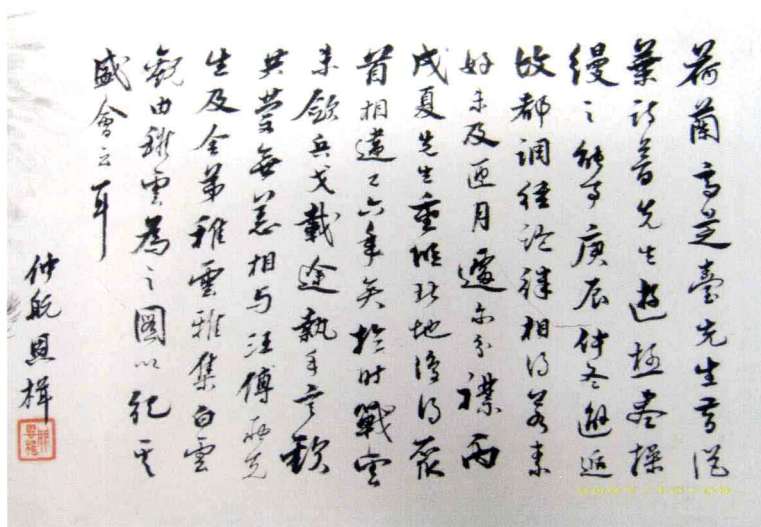 荷蘭高芝臺先生嘗從
葉詩夢先生遊極盡操
縵之能事庚辰仲冬邂逅
故都調絃論律相得若素
好未及匝月遽尔分襟丙
戌夏先生重臨北地復得聚
首相違已六年矣於时戰雲
未斂兵戈載途執手言歡
共慶無恙相与汪傅兩先
生及令弟稚雲雅集白雲
觀由稚雲為之圖以紀其
盛會云耳
仲航恩楫